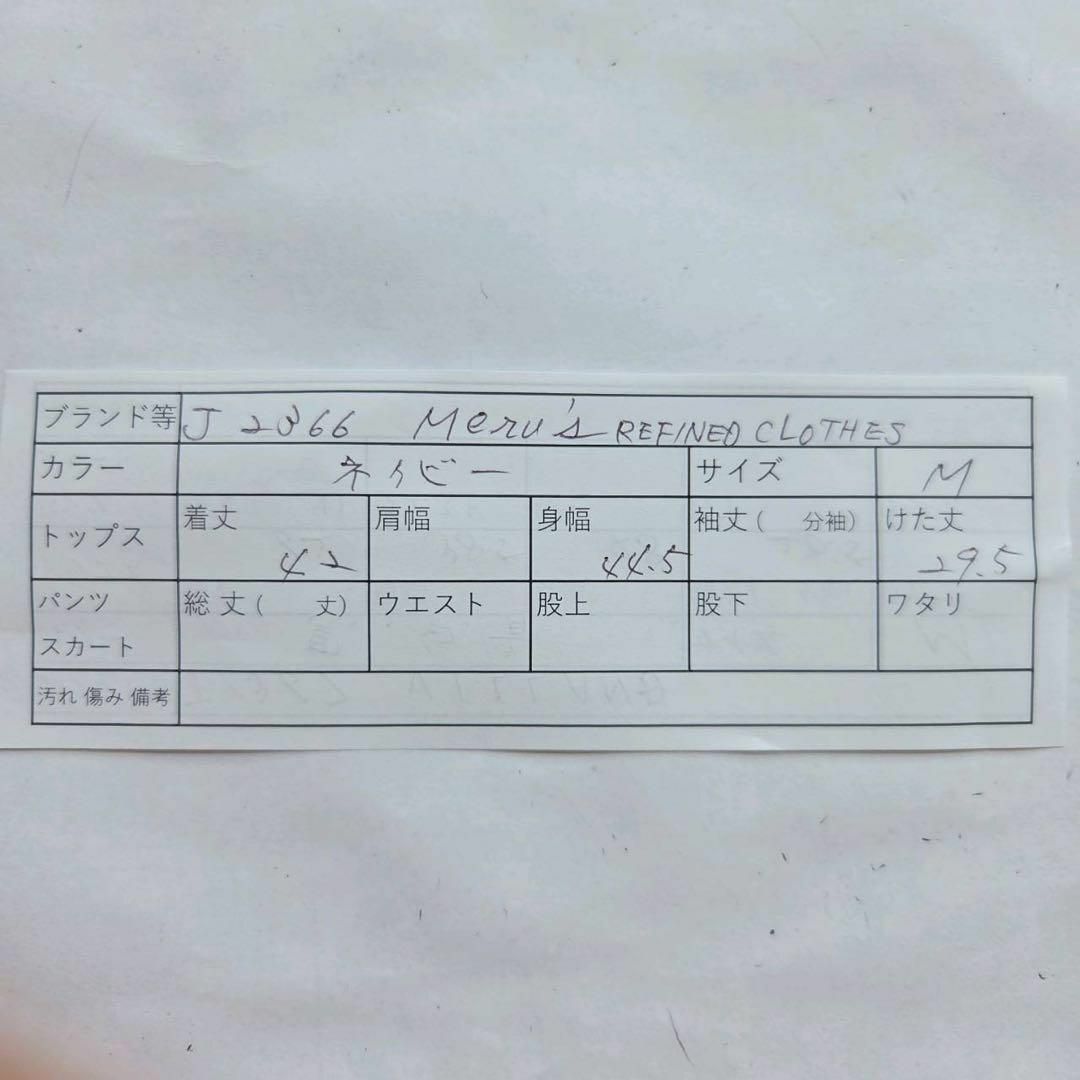 ブランド等 J 2366 Meru's REFINED CLOTHES
カラー ネイビー サイズ M
トップス 着丈 42 肩幅 身幅 44.5 袖丈( 分袖) けた丈 29.5
パンツ スカート 総丈( 丈) ウエスト 股上 股下 ワタリ
汚れ 傷み 備考